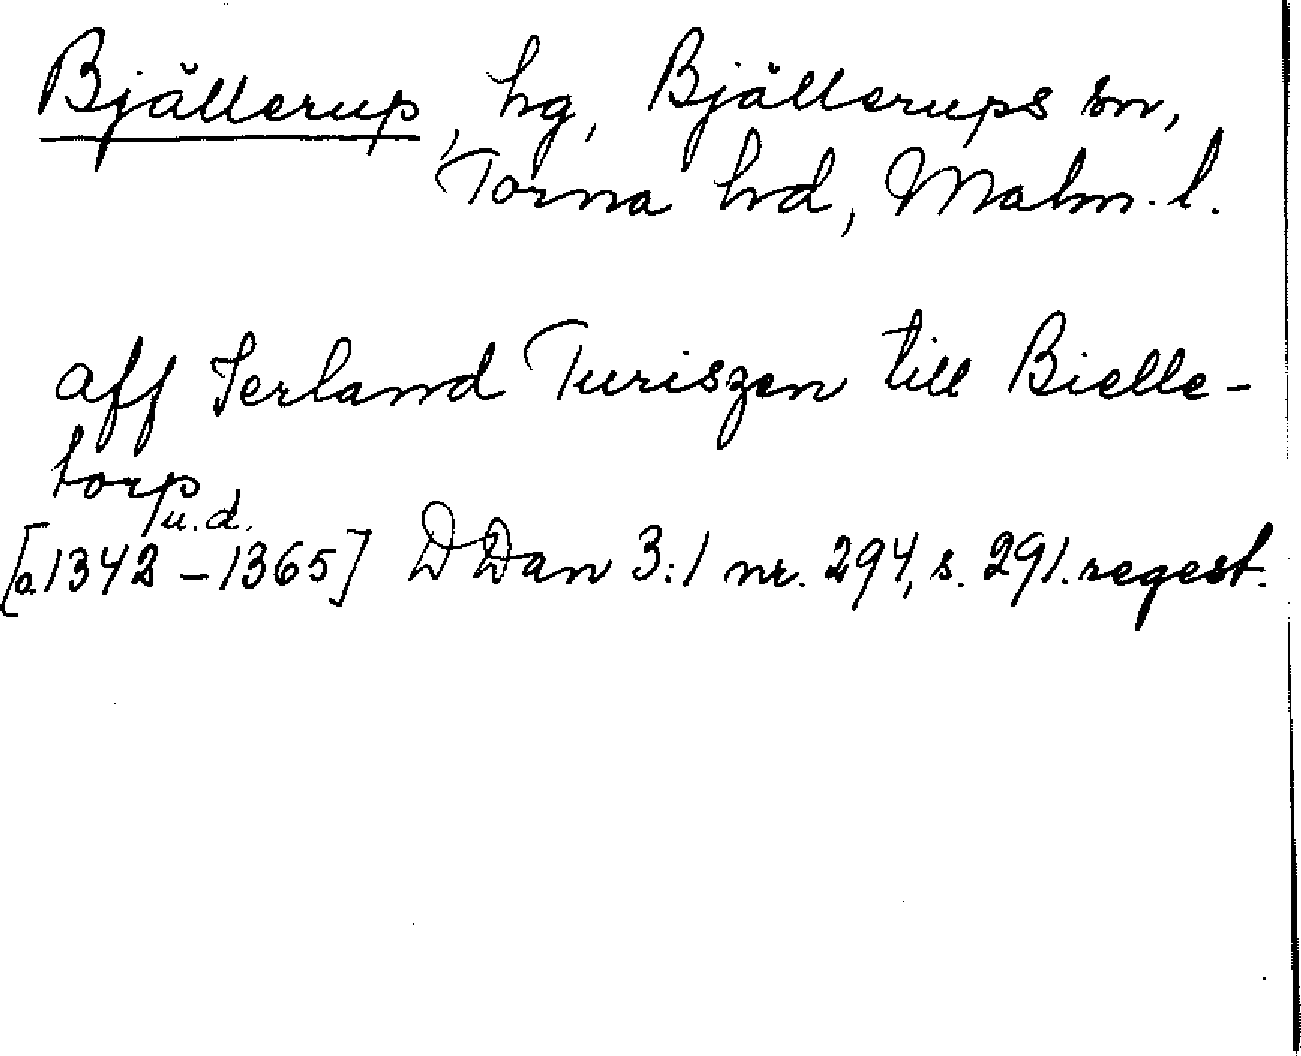 Bjällerup, hg, Bjällerups sn,
Torna hd, Malm. l.
aff Jerland Turiszen till Bielle-
torp
u.d.
[a.1342-1365] DDan 3:1 nr. 294, s. 291. regest.